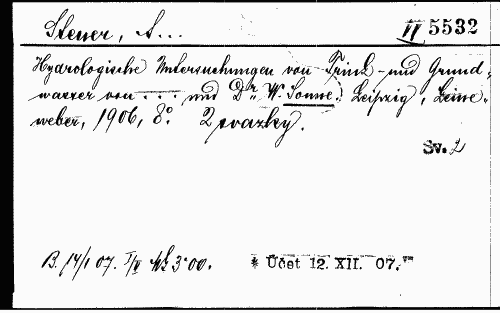 Steuer, A... II 5532
Hydrologische Untersuchungen von Trink- und Grund-
wasser von .... und Dr. W. Sonne. Leipzig, Leine-
weber, 1906, 8°. 2 svazky.
Sv. 2
B. 14/1 07. I/II Mk 3·00. * Účet 12. XII. 07.